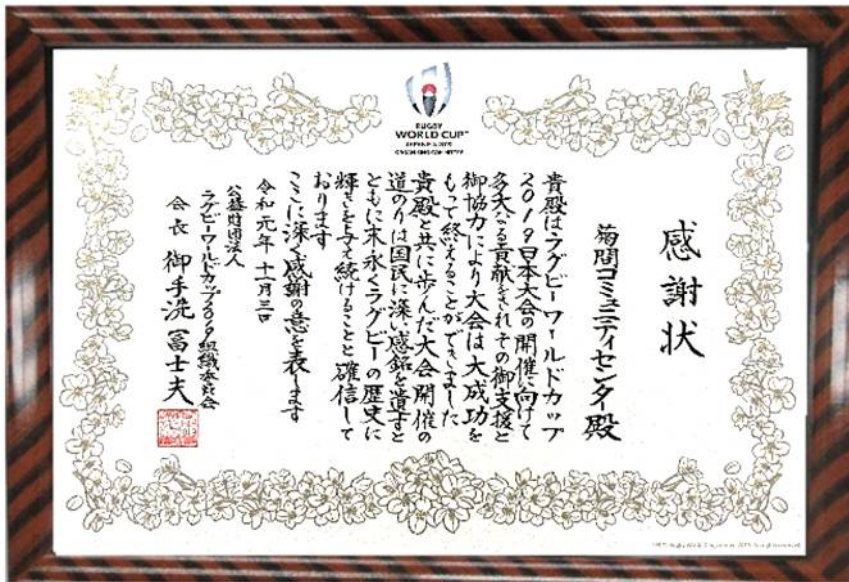 RUGBY
WORLD CUP™
JAPAN 日本 2019
ORGANISING COMMITTEE
感謝状
菊間コミュニティセンター殿
貴殿はラグビーワールドカップ
2019日本大会の開催に向けて
多大なる貢献をされその御支援と
御協力により大会は大成功を
もって終えることができました
貴殿と共に歩んだ大会開催の
道のりは国民に深い感銘を遺すと
ともに末永くラグビーの歴史に
輝きを与え続けることと確信して
おります
ここに深く感謝の意を表します
令和元年十一月三日
公益財団法人
ラグビーワールドカップ2019組織委員会
会長 御手洗冨士夫